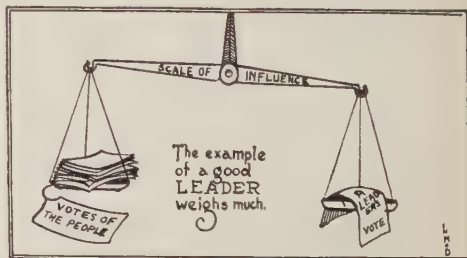 SCALE OF INFLUENCE
The example
of a good
LEADER
weighs much.
VOTES OF
THE PEOPLE
A
LEAD
ERS
VOTE
L
H
D